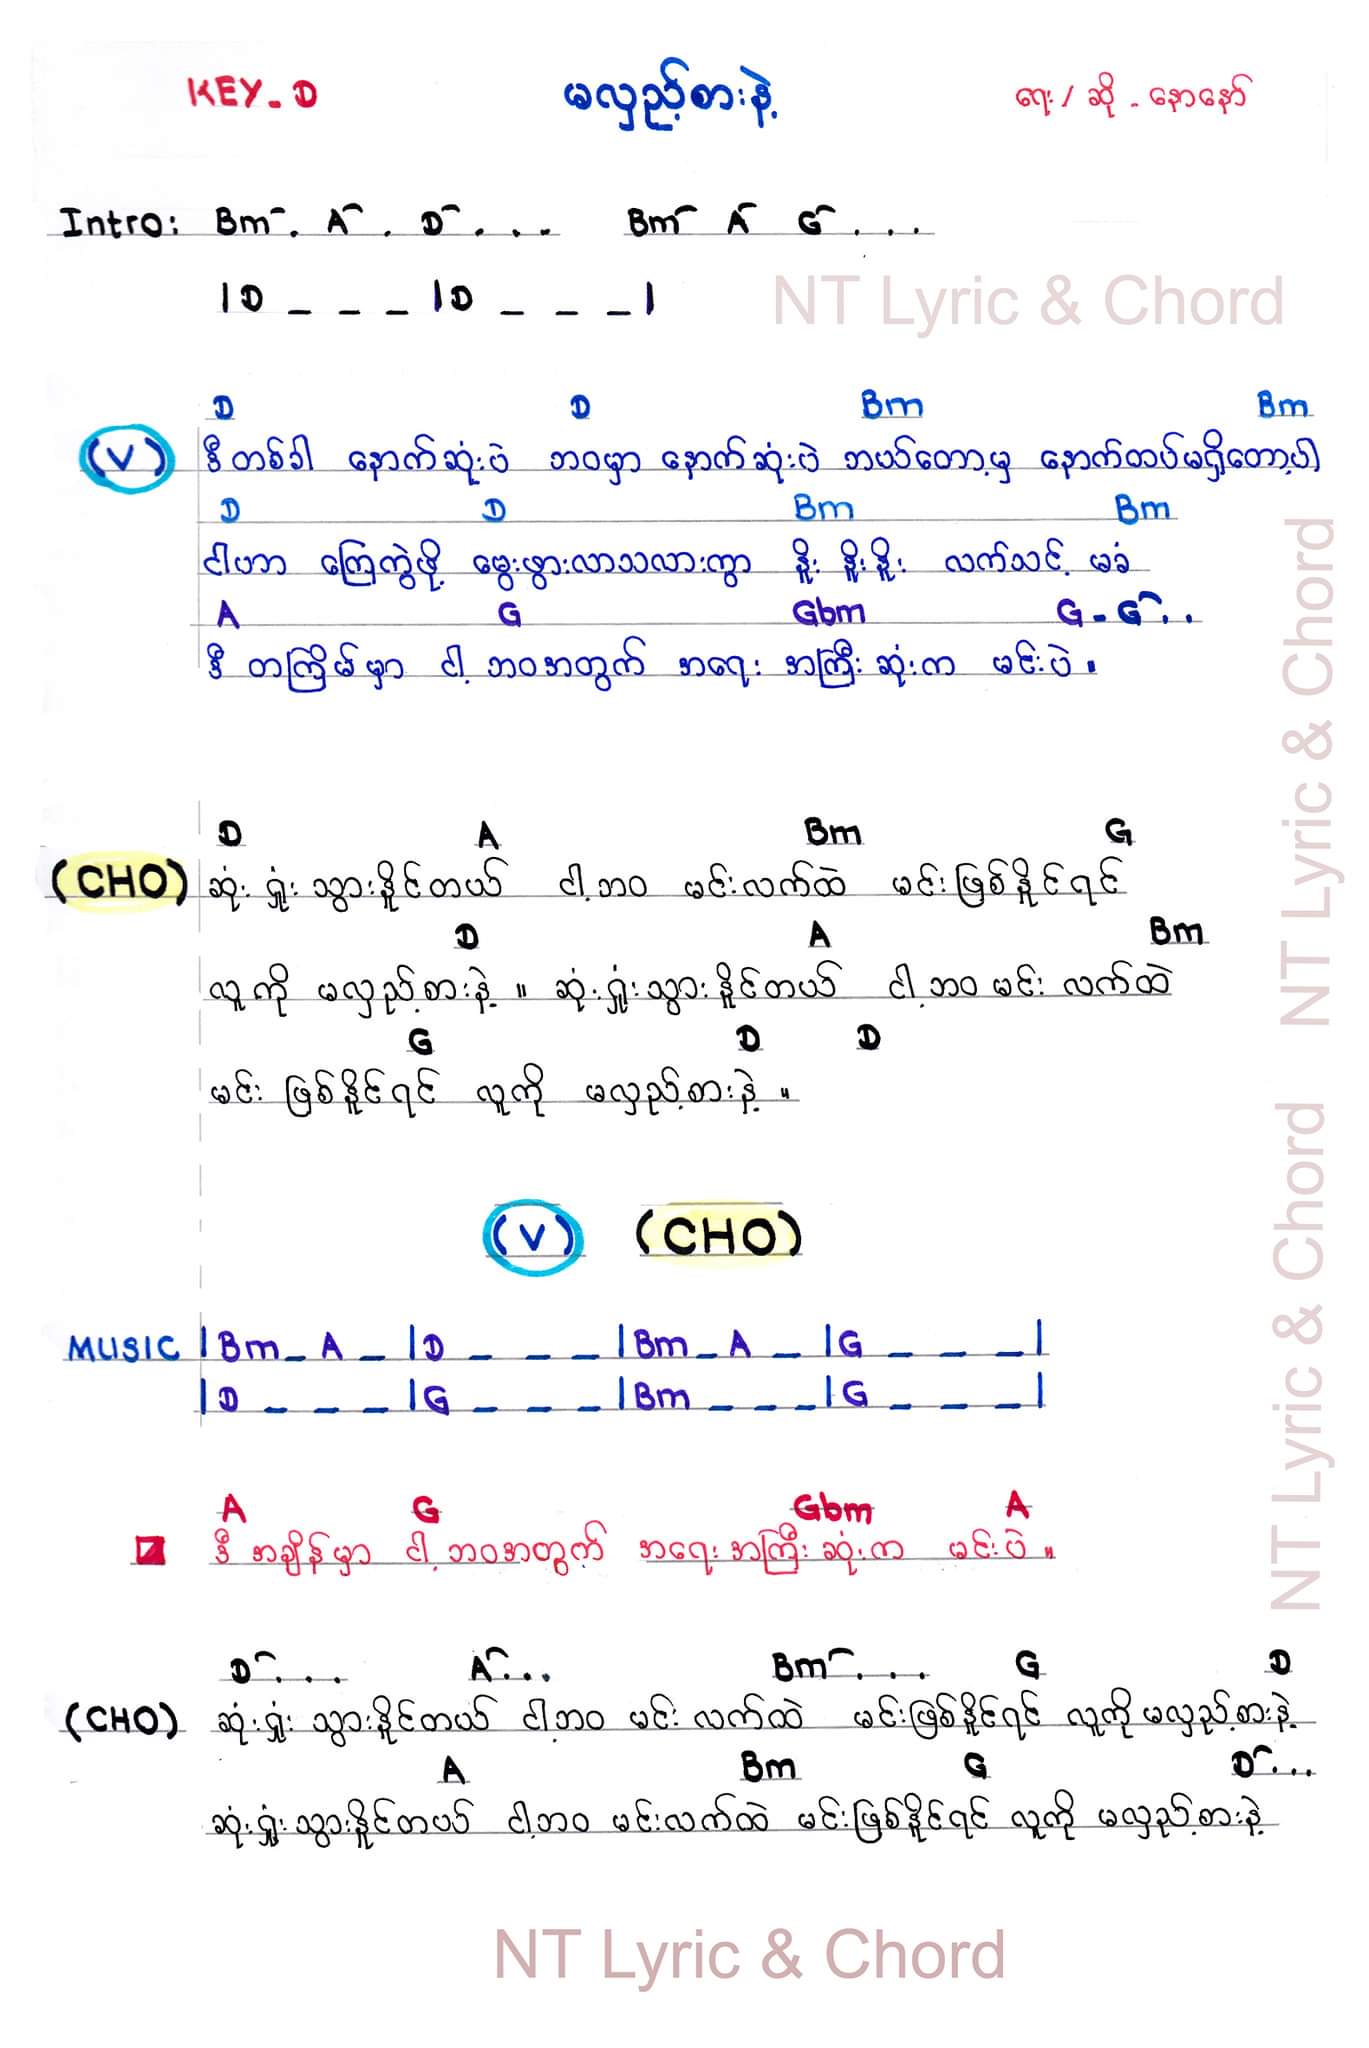 KEY - D မလှည့်စားနဲ့ ရေး / ဆို - နောနော်
Intro: Bm . A . D . . . Bm A G . . .
| D _ _ _ | D _ _ _ |
NT Lyric & Chord
D D Bm Bm
(V) ဒီတစ်ခါ နောက်ဆုံးပဲ ဘဝမှာ နောက်ဆုံးပဲ ဘယ်တော့မှ နောက်ထပ်မရှိတော့ပါ
D D Bm Bm
ငါဟာ ကြေကွဲဖို့ မွေးဖွားလာသလားကွာ နိုး နိုးနိုး လက်သင့် မခံ
A G Gbm G - G . .
ဒီ တကြိမ်မှာ ငါ့ ဘဝအတွက် အရေး အကြီးဆုံးက မင်းပဲ ။
NT Lyric & Chord
D A Bm G
(CHO) ဆုံး ရှုံး သွားနိုင်တယ် ငါ့ဘဝ မင်းလက်ထဲ မင်းဖြစ်နိုင်ရင်
D A Bm
လူကို မလှည့်စားနဲ့ ။ ဆုံးရှုံးသွားနိုင်တယ် ငါ့ဘဝ မင်း လက်ထဲ
G D D
မင်း ဖြစ်နိုင်ရင် လူကို မလှည့်စားနဲ့ ။
NT Lyric & Chord
(V) (CHO)
MUSIC | Bm _ A _ | D _ _ _ | Bm _ A _ | G _ _ _ |
| D _ _ _ | G _ _ _ | Bm _ _ _ | G _ _ _ |
A G Gbm A
ဒီအချိန်မှာ ငါ့ ဘဝအတွက် အရေးအကြီးဆုံးက မင်းပဲ ။
D . . . A . . . Bm . . . G D
(CHO) ဆုံးရှုံး သွားနိုင်တယ် ငါ့ဘဝ မင်း လက်ထဲ မင်းဖြစ်နိုင်ရင် လူကို မလှည့်စားနဲ့
A Bm G D . . .
ဆုံးရှုံးသွားနိုင်တယ် ငါ့ဘဝ မင်းလက်ထဲ မင်းဖြစ်နိုင်ရင် လူကို မလှည့်စားနဲ့
NT Lyric & Chord